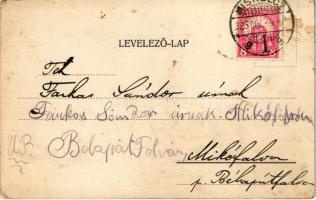 MISKOLCZ
LEVELEZŐ-LAP
Tek
Farkas Sándor úrnak
Farkas Sándor úrnak Mikófalván
U.P. Bélapát Falva
Mikófalva
p. Bélapátfalva